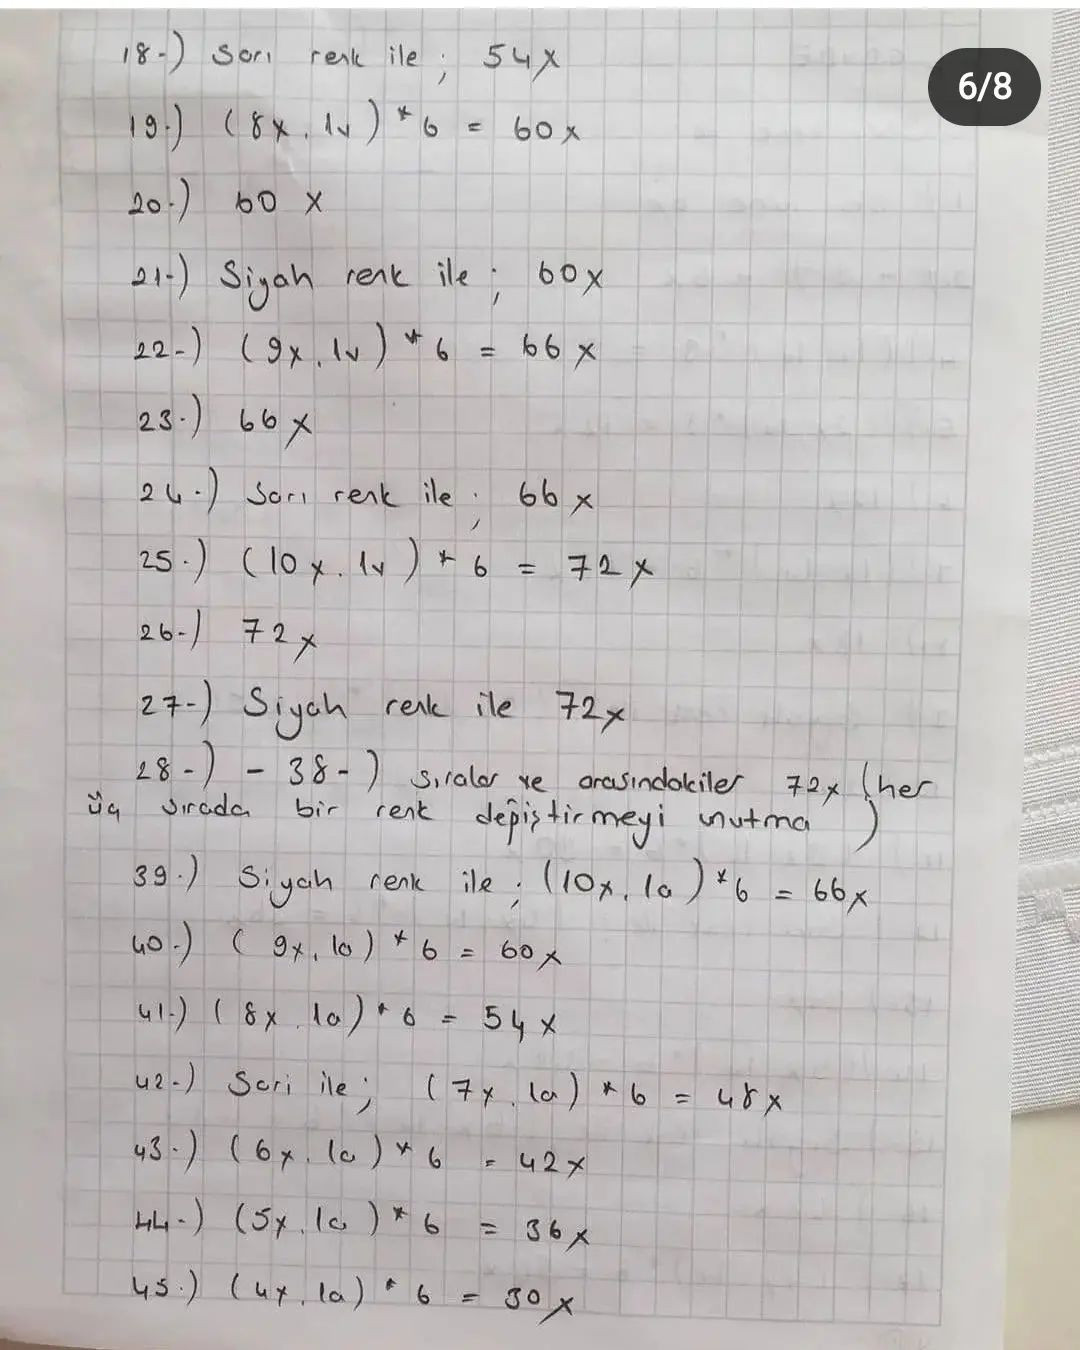 6/8
18-) Sarı renk ile ; 54x
19-) (8x, 1v) * 6 = 60x
20-) 60 x
21-) Siyah renk ile ; 60x
22-) (9x, 1v) * 6 = 66x
23-) 66x
24-) Sarı renk ile ; 66x
25-) (10x, 1v) * 6 = 72x
26-) 72x
27-) Siyah renk ile 72x
28-) - 38-) sıralar ve arasındakiler 72x (her
üç sırada bir renk değiştirmeyi unutma)
39-) Siyah renk ile ; (10x, 1a) * 6 = 66x
40-) (9x, 1a) * 6 = 60x
41-) (8x, 1a) * 6 = 54x
42-) Sari ile ; (7x, 1a) * 6 = 48x
43-) (6x, 1a) * 6 = 42x
44-) (5x, 1a) * 6 = 36x
45-) (4x, 1a) * 6 = 30x